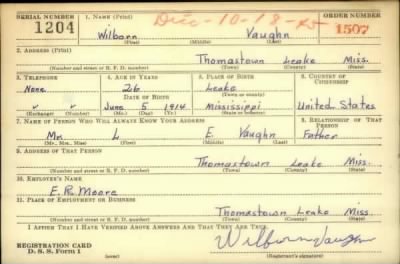 SERIAL NUMBER 1. NAME (Print) Dec-10-18- ORDER NUMBER
1204 Wilborn Vaughn 1507
(First) (Middle) (Last)
2. ADDRESS (Print)
Thomastown Leake Miss.
(Number and street or R. F. D. number) (Town) (County) (State)
3. TELEPHONE 4. AGE IN YEARS 5. PLACE OF BIRTH 6. COUNTRY OF CITIZENSHIP
None 26 Leake
DATE OF BIRTH (Town or county)
June 5 1914 Mississippi United States
(Exchange) (Number) (Mo.) (Day) (Yr.) (State or country)
7. NAME OF PERSON WHO WILL ALWAYS KNOW YOUR ADDRESS 8. RELATIONSHIP OF THAT PERSON
Mr. L E. Vaughn Father
(Mr., Mrs., Miss) (First) (Middle) (Last)
9. ADDRESS OF THAT PERSON
Thomastown Leake Miss.
(Number and street or R. F. D. number) (Town) (County) (State)
10. EMPLOYER'S NAME
E.R. Moore
11. PLACE OF EMPLOYMENT OR BUSINESS
Thomastown Leake Miss.
(Number and street or R. F. D. number) (Town) (County) (State)
I AFFIRM THAT I HAVE VERIFIED ABOVE ANSWERS AND THAT THEY ARE TRUE.
REGISTRATION CARD
D. S. S. Form 1 Wilborn Vaughn
(Registrant's signature)